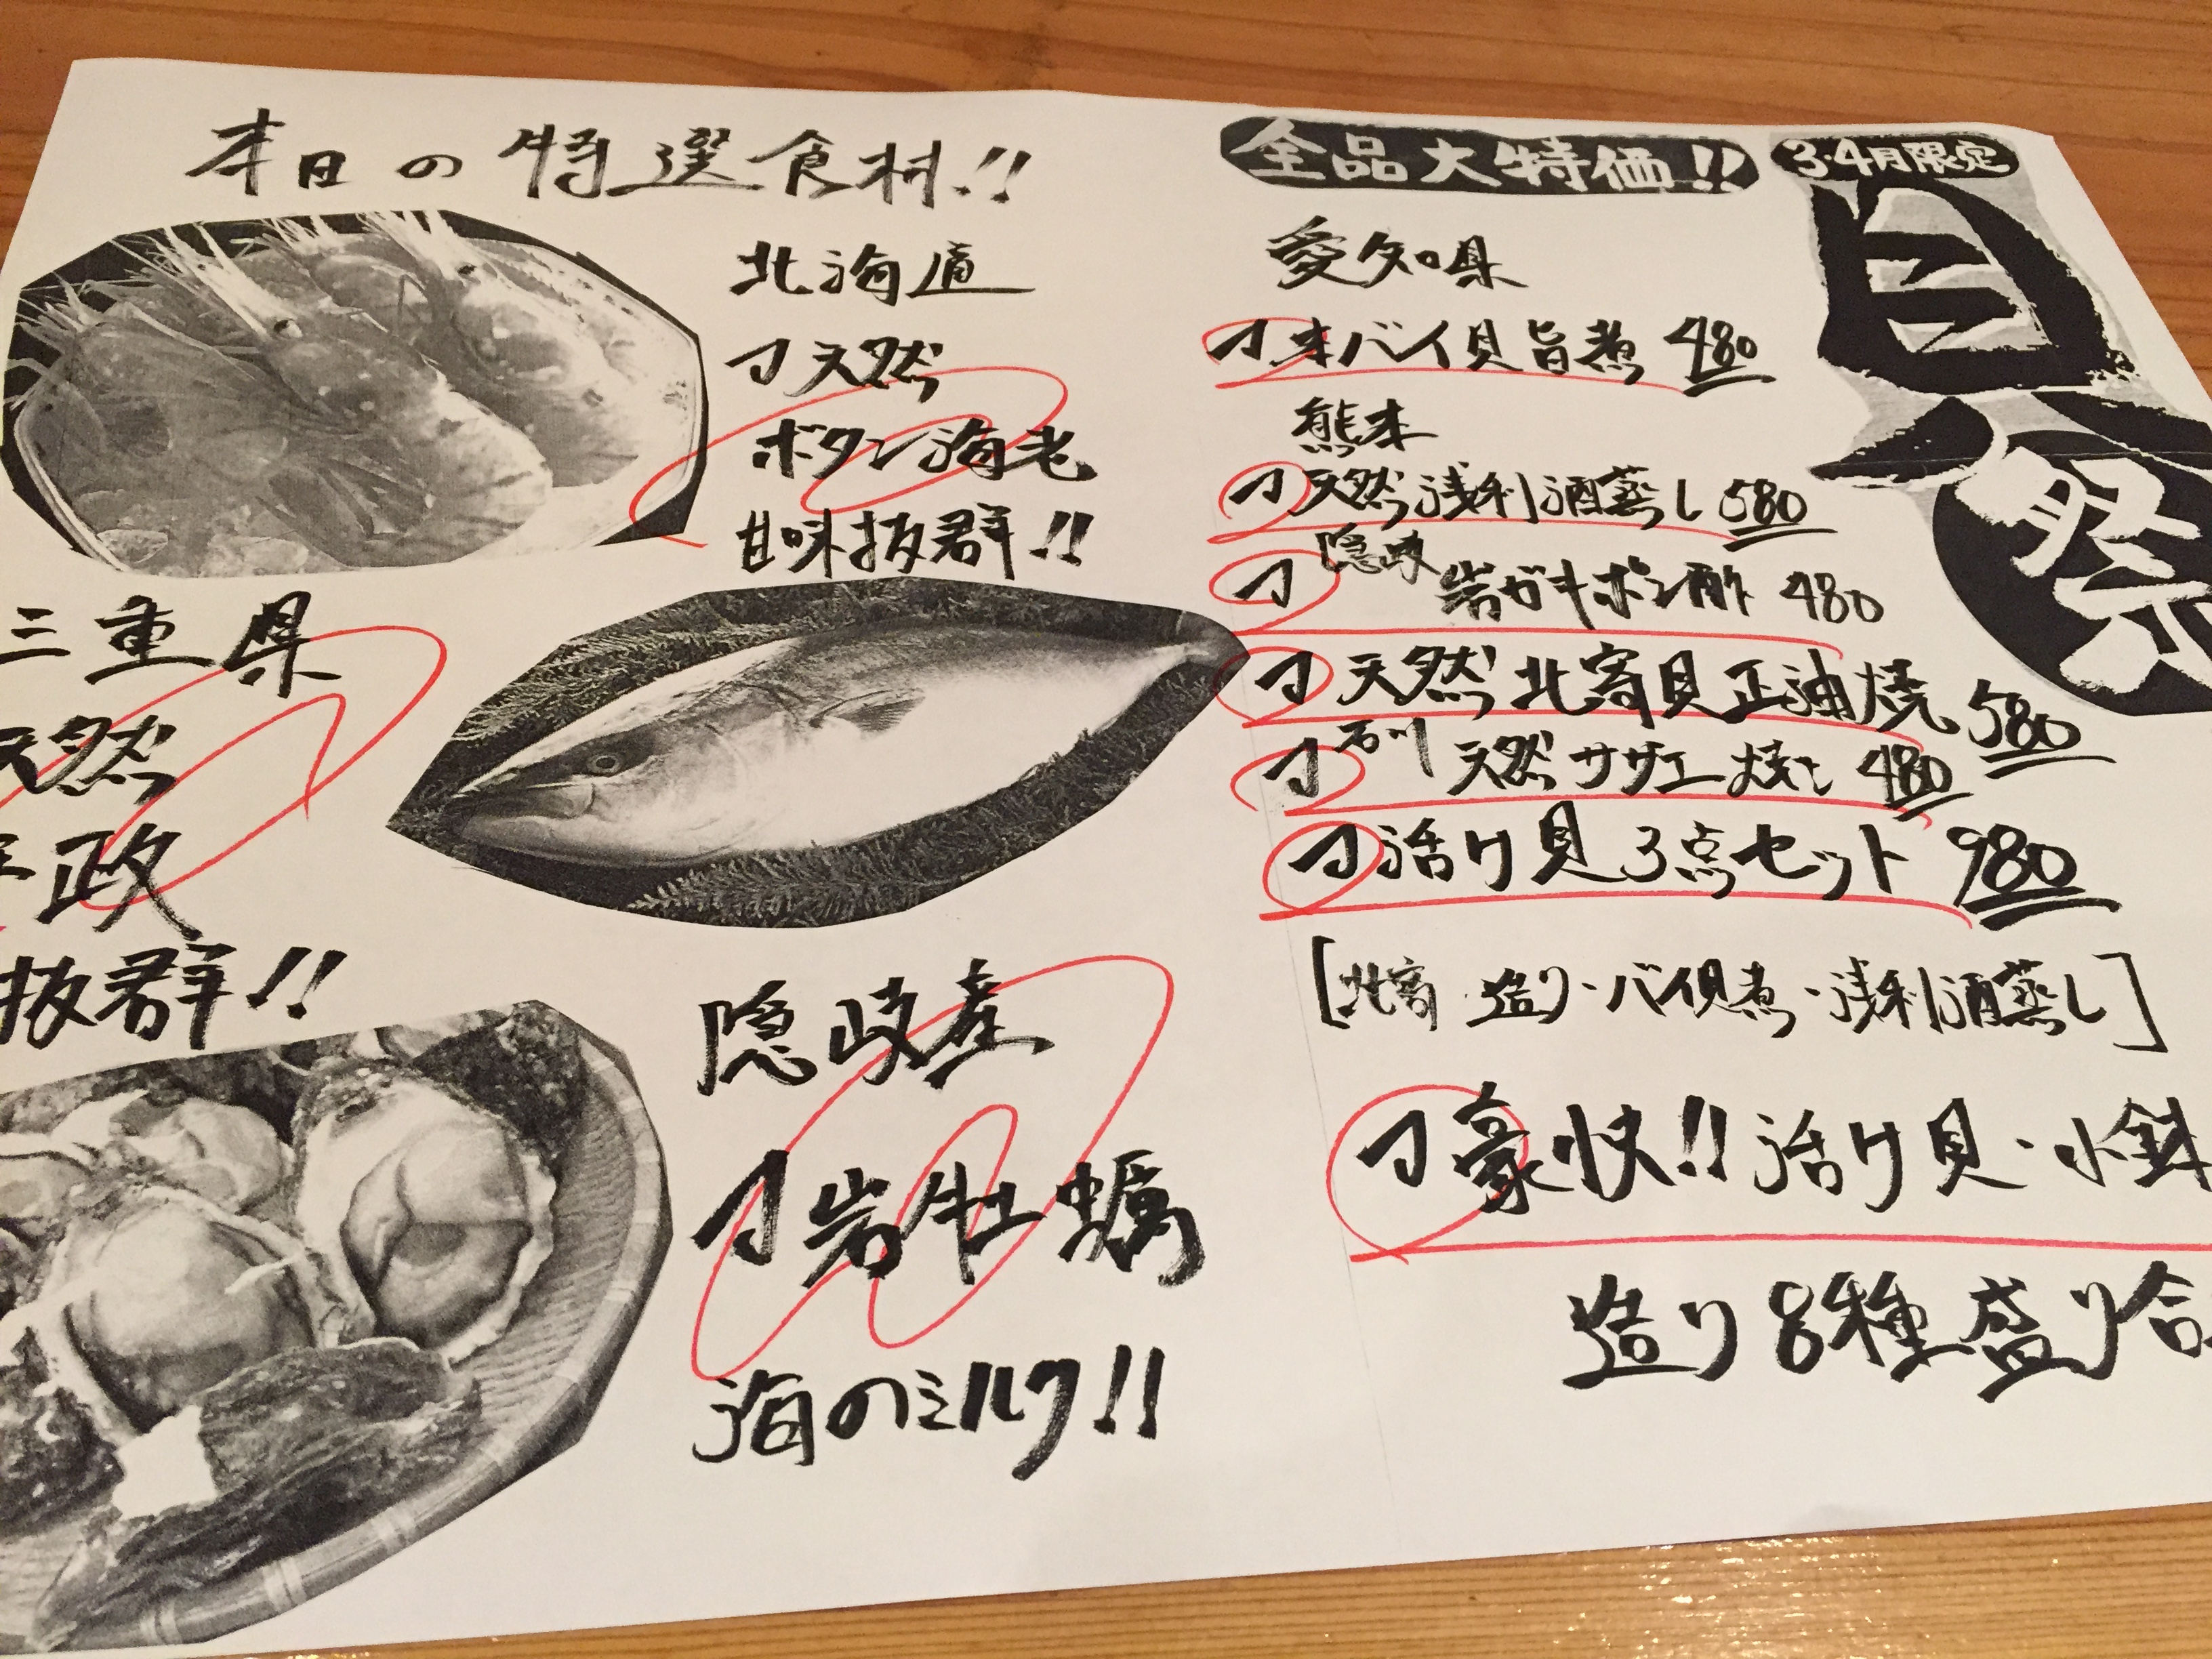 本日の特選食材!!
北海道
天然
ボタン海老
甘味抜群!!
三重県
天然
政
抜群!!
隠岐産
岩牡蠣
海のミルク!!
全品大特価!!
3・4月限定
貝
祭
愛知県
本バイ貝旨煮 480
熊本
天然浅利酒蒸し 580
隠岐
岩ガキポン酢 480
天然北寄貝正油焼 580
石川 天然サザエ焼 480
活け貝3点セット 980
[北寄 造り・バイ貝煮・浅利酒蒸し]
豪快!!活け貝・小鉢
造り8種盛り合